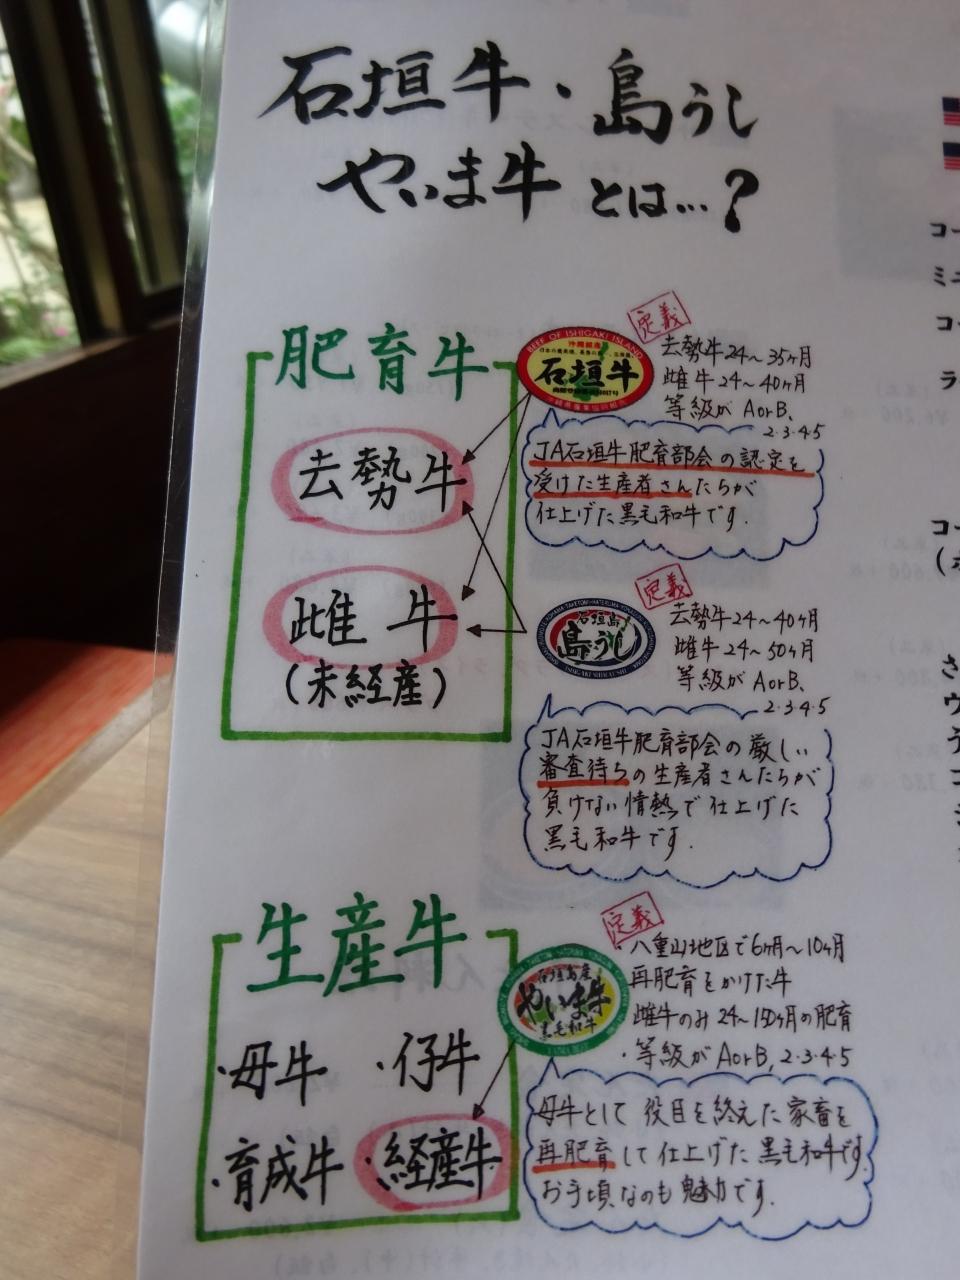 石垣牛・島うし
やいま牛とは…?
肥育牛
去勢牛
雌牛
(未経産)
BEEF OF ISHIGAKI ISLAND
沖縄県産
石垣牛
定義
去勢牛24〜35ヶ月
雌牛24〜40ヶ月
等級が AorB、
2・3・4・5
JA石垣牛肥育部会の認定を
受けた生産者さんたちが
仕上げた黒毛和牛です.
石垣島
島うし
定義
去勢牛24〜40ヶ月
雌牛24〜50ヶ月
等級が AorB、
2・3・4・5
JA石垣牛肥育部会の厳しい
審査待ちの生産者さんたちが
負けない情熱で仕上げた
黒毛和牛です.
生産牛
・母牛 ・仔牛
・育成牛 ・経産牛
石垣島産
やいま牛
黒毛和牛
定義
・八重山地区で6ヶ月〜10ヶ月
再肥育をかけた牛
雌牛のみ24〜150ヶ月の肥育
・等級がAorB, 2・3・4・5
母牛として役目を終えた家畜を
再肥育して仕上げた黒毛和牛です.
お手頃なのも魅力です.
コー
ミニ
コー
ラ
コー
さ
ウ